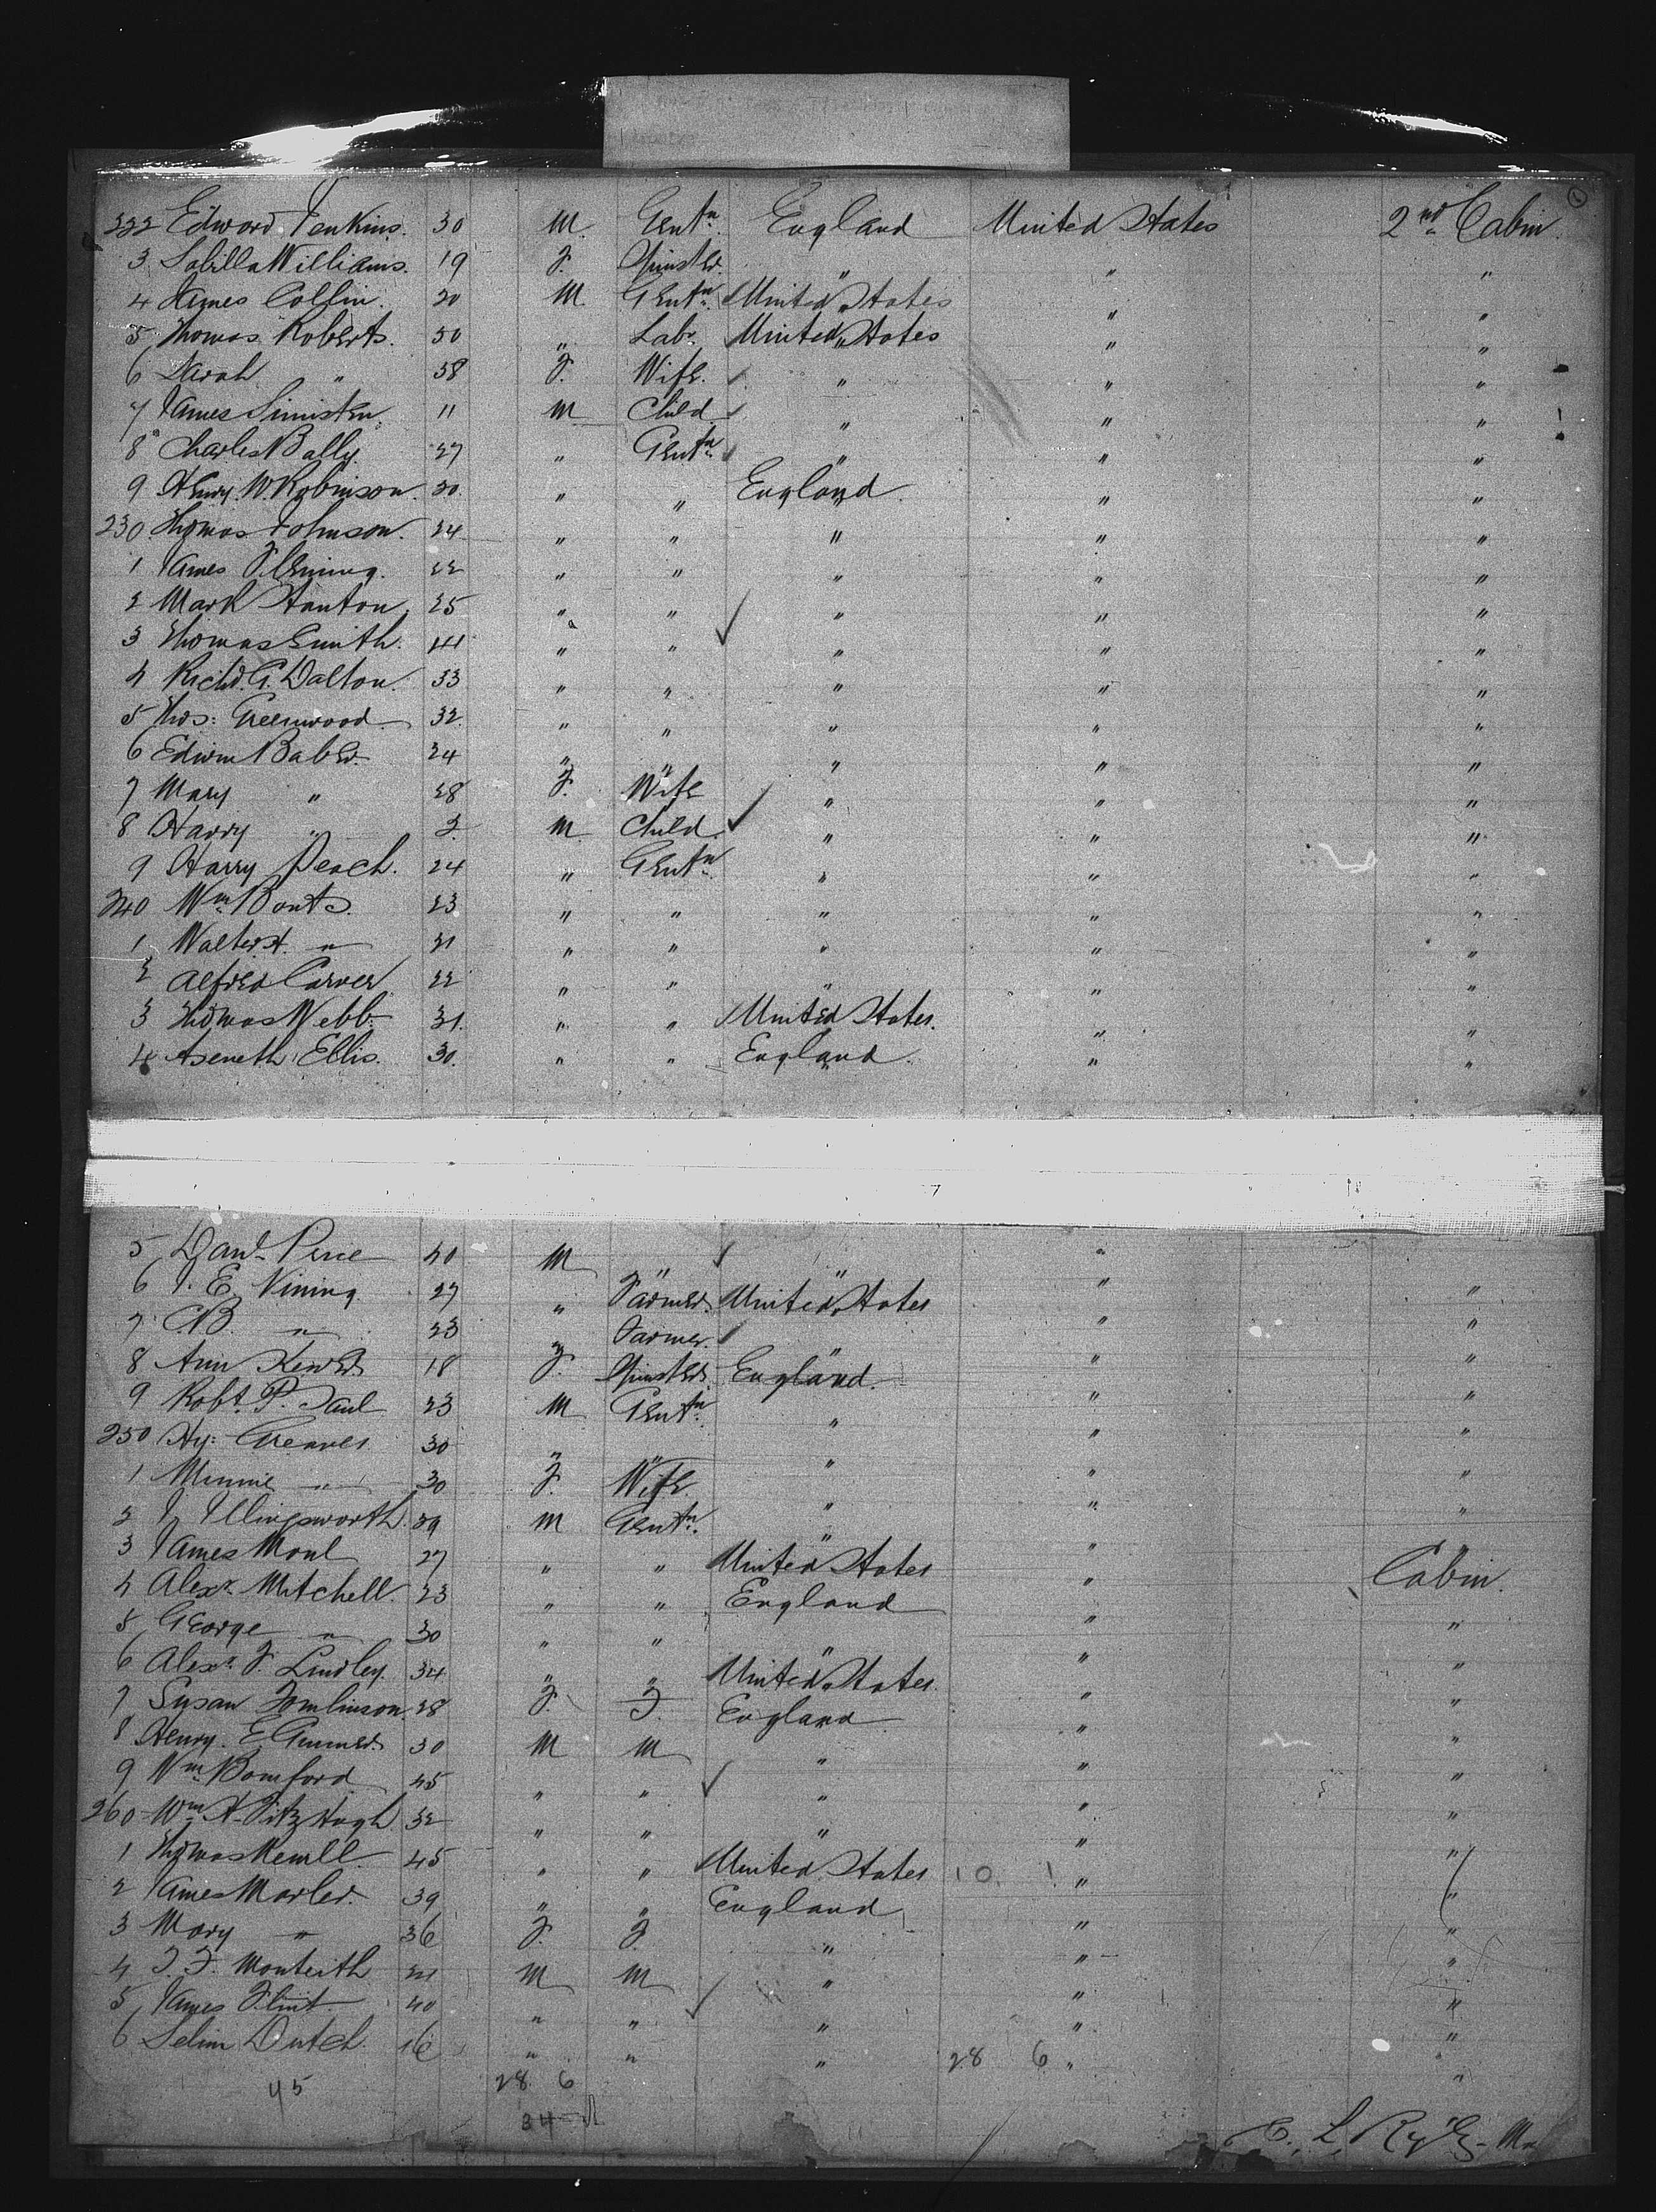 222 Edward Jenkins. 30 M. Gentn. England United States 2nd Cabin.
3 Sabilla Williams. 19 F. Spinster. " " "
4 James Collin. 20 M Gentn. United States " "
5 Thomas Roberts. 50 " Labr. United States " "
6 Sarah " 58 F. Wife. " " "
7 James Simister 11 M Child " " "
8 Charles Bally. 27 " Gentn. " " "
9 Henry W. Robinson. 30. " " England. " "
230 Thomas Johnson. 24 " " " " "
1 James Fleming. 22 " " " " "
2 Mark Stanton. 25 " " " " "
3 Thomas Smith. 44 " " " " "
4 Richd. G. Dalton. 33 " " " " "
5 Thos: Greenwood 32. " " " " "
6 Edwin Baber. 24 " " " " "
7 Mary " 28 F. Wife " " "
8 Harry " 2. M. Child. " " "
9 Harry Peach. 24 " Gentn. " " "
240 Wm. Bonts. 23 " " " " "
1 Walter H. " 21 " " " " "
2 Alfred Carver 22 " " " " "
3 Thomas Webb. 31. " " United States. " "
4 Aseneth Ellis. 30. " " England. " "
5 Danl. Price 40 M " " "
6 J. E. Vining 27 " Farmer. United States " "
7 C.B. " 23 Farmer. " " "
8 Ann 18 F. Spinster. England. " "
9 Robt. P. Saul 23 M Gentn. " " "
250 Hy: Greaves 30 " " " " "
1 Minnie " 30 F. Wife. " " "
2 J. Illingsworth. 29 M Gentn. " "
3 James Monl 27 " " United States " Cabin.
4 Alexr. Mitchell. 23 " " England " "
5 George " 30 " " " " "
6 Alexr. F. Lindley. 34 " " United States. " "
7 Susan Tomlinson. 28 F. F. England " "
8 Henry. E. Gunner. 30 M M " " "
9 Wm. Bomford 45 " " " " "
260 Wm. H. Fitz Hugh. 32 " " " " "
1 Thomas 45 " " United States 10. 1 " "
2 James Marler. 39 " " England " "
3 Mary " 36 F. F. " " "
4 J. F. Monteith 21 M M " " "
5 James Flint. 40 " " " " "
6 Selim Dutch. 16 " " " 28 6 " "
45 28. 6
34